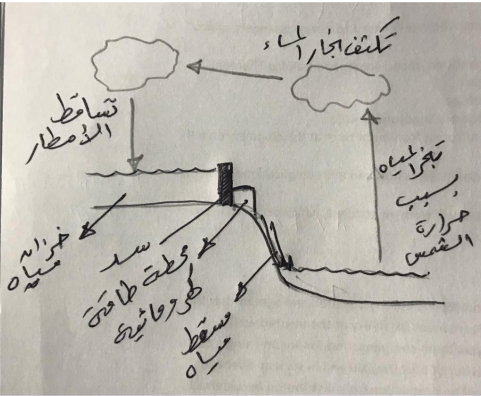 تكثف بخار الماء
تساقط
الأمطار
تبخر المياه
بسبب
حرارة
الشمس
خزان
مياه
سد
محطة طاقة
كهرومائية
مسقط
مياه